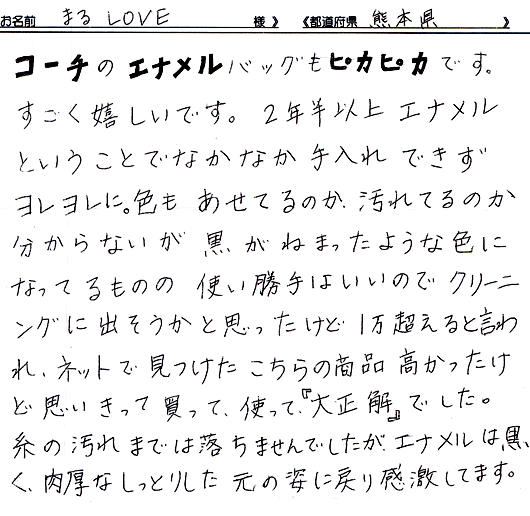 お名前 まるLOVE 様 》 《都道府県 熊本県 》
コーチの エナメルバッグもピカピカです。
すごく嬉しいです。2年半以上 エナメル
ということでなかなか手入れ できず
ヨレヨレに。色も あせてるのか、汚れてるのか
分からないが 黒がねまったような色に
なってるものの 使い勝手はいいので クリーニ
ングに出そうかと思ったけど 1万超えると言わ
れ、ネットで見つけた こちらの商品 高かったけ
ど思いきって買って、使って、『大正解』でした。
糸の汚れまでは落ちませんでしたが、エナメルは、黒
く、肉厚なしっとりした 元の姿に戻り感激してます。